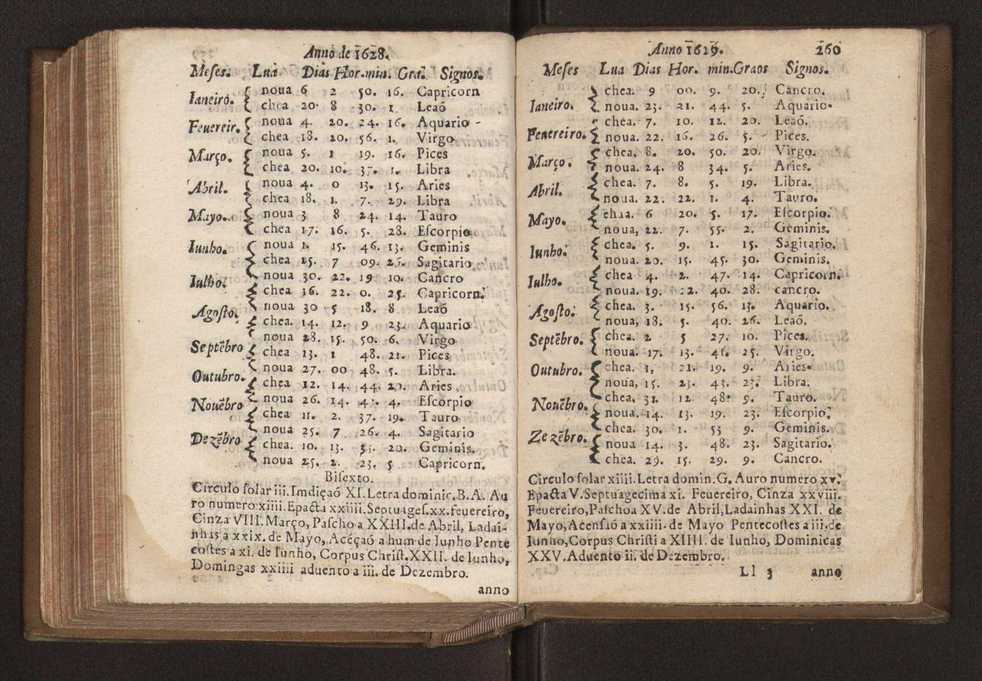 Anno de 1628.
Meses. Lua Dias Hor. min. Gra. Signos.
Ianeiro. noua 6 2 50. 16. Capricorn
chea 20. 8 30. 1. Leaõ
Feuereir. noua 4. 20. 24. 16. Aquario
chea 18. 20. 56. 1. Virgo
Março. noua 5. 1 19. 16. Pices
chea 20. 10. 37. 1. Libra
Abril. noua 4. 0 13. 15. Aries
chea 18. 1. 7. 29. Libra
Mayo. noua 3 8 24. 14. Tauro
chea 17. 16. 5. 28. Escorpio
Iunho. noua 1. 15. 46. 13. Geminis
chea 15. 7 09. 26. Sagitario
Iulho. noua 30. 22. 19 10. Cancro
chea 16. 22. 0. 25. Capricorn.
Agosto. noua 30 5 18. 8 Leaõ
chea. 14. 12. 9 23. Aquario
Septẽbro noua 28. 15. 50. 6. Virgo
chea 13. 1 48. 21. Pices
Outubro. noua 27. 00 48. 5. Libra.
chea 12. 14. 44. 20. Aries.
Nouẽbro noua 26. 14. 4. Escorpio
chea 11. 2. 37. 19. Tauro
Dezẽbro noua 25. 7 26. 4. Sagitario
chea. 10. 13. 51. 20. Geminis.
noua 25. 2. 23. 5 Capricorn.
Bisexto.
Circulo solar iii. Imdiçaõ XI. Letra dominic. B. A. Au
ro numero xiiii. Epacta xxiiii. Septuages. xx. feuereiro,
Cinza VIII. Março, Pascho a XXIII. de Abril, Ladai-
nhas a xxix. de Mayo, Acẽçaõ a hum de Iunho Pente
costes a xi. de Iunho, Corpus Christ. XXII. de Iunho,
Domingas xxiiii aduento a iii. de Dezembro.
anno
Anno 1629. 260
Meses Lua Dias Hor. min. Graos Signos.
Ianeiro. chea. 9 00. 9. 20. Cancro.
noua. 23. 21. 44. 5. Aquario.
Feuereiro. chea. 7. 10. 12. 20. Leaõ.
noua. 22. 16. 26. 5. Pices.
Março. chea. 8. 20. 50. 20. Virgo.
noua. 24. 8 34. 5. Aries.
Abril. chea. 7. 8. 5. 19. Libra.
noua. 22. 22. 1. 4. Tauro.
Mayo. chea. 6 20. 5. 17. Escorpio.
noua, 22. 7. 55. 2. Geminis.
Iunho. chea. 5. 9. 1. 15. Sagitario.
noua. 20. 15. 45. 30. Geminis.
Iulho. chea 4. 2. 47. 14. Capricorn.
noua. 19. 12. 40. 28. cancro.
Agosto. chea. 3. 15. 56. 13. Aquario.
noua, 18. 5. 40. 26. Leaõ.
Septẽbro. chea. 2 5 27. 10. Pices.
noua. 17. 13. 46. 25. Virgo.
Outubro. chea. 1, 21. 19. 9. Aries.
noua, 15. 23. 43. 23. Libra.
Nouẽbro. chea. 31. 12 48. 9. Tauro.
noua. 14. 13. 19. 23. Escorpio.
Zezẽbro. chea. 30. 1. 53 9. Geminis.
noua 14. 3. 48. 23. Sagitario.
chea. 29. 15. 29. 9. Cancro.
Circulo solar xiiii. Letra domin. G. Auro numero xv.
Epacta V. Septuagecima xi. Feuereiro, Cinza xxviii.
Feuereiro, Pascho a XV. de Abril, Ladainhas XXI. de
Mayo, Acensiõ a xxiiii. de Mayo Pentecostes a iii. de
Iunho, Corpus Christi a XIIII. de Iunho, Dominicas
XXV. Aduento ii. de Dezembro.
Ll 3 anno